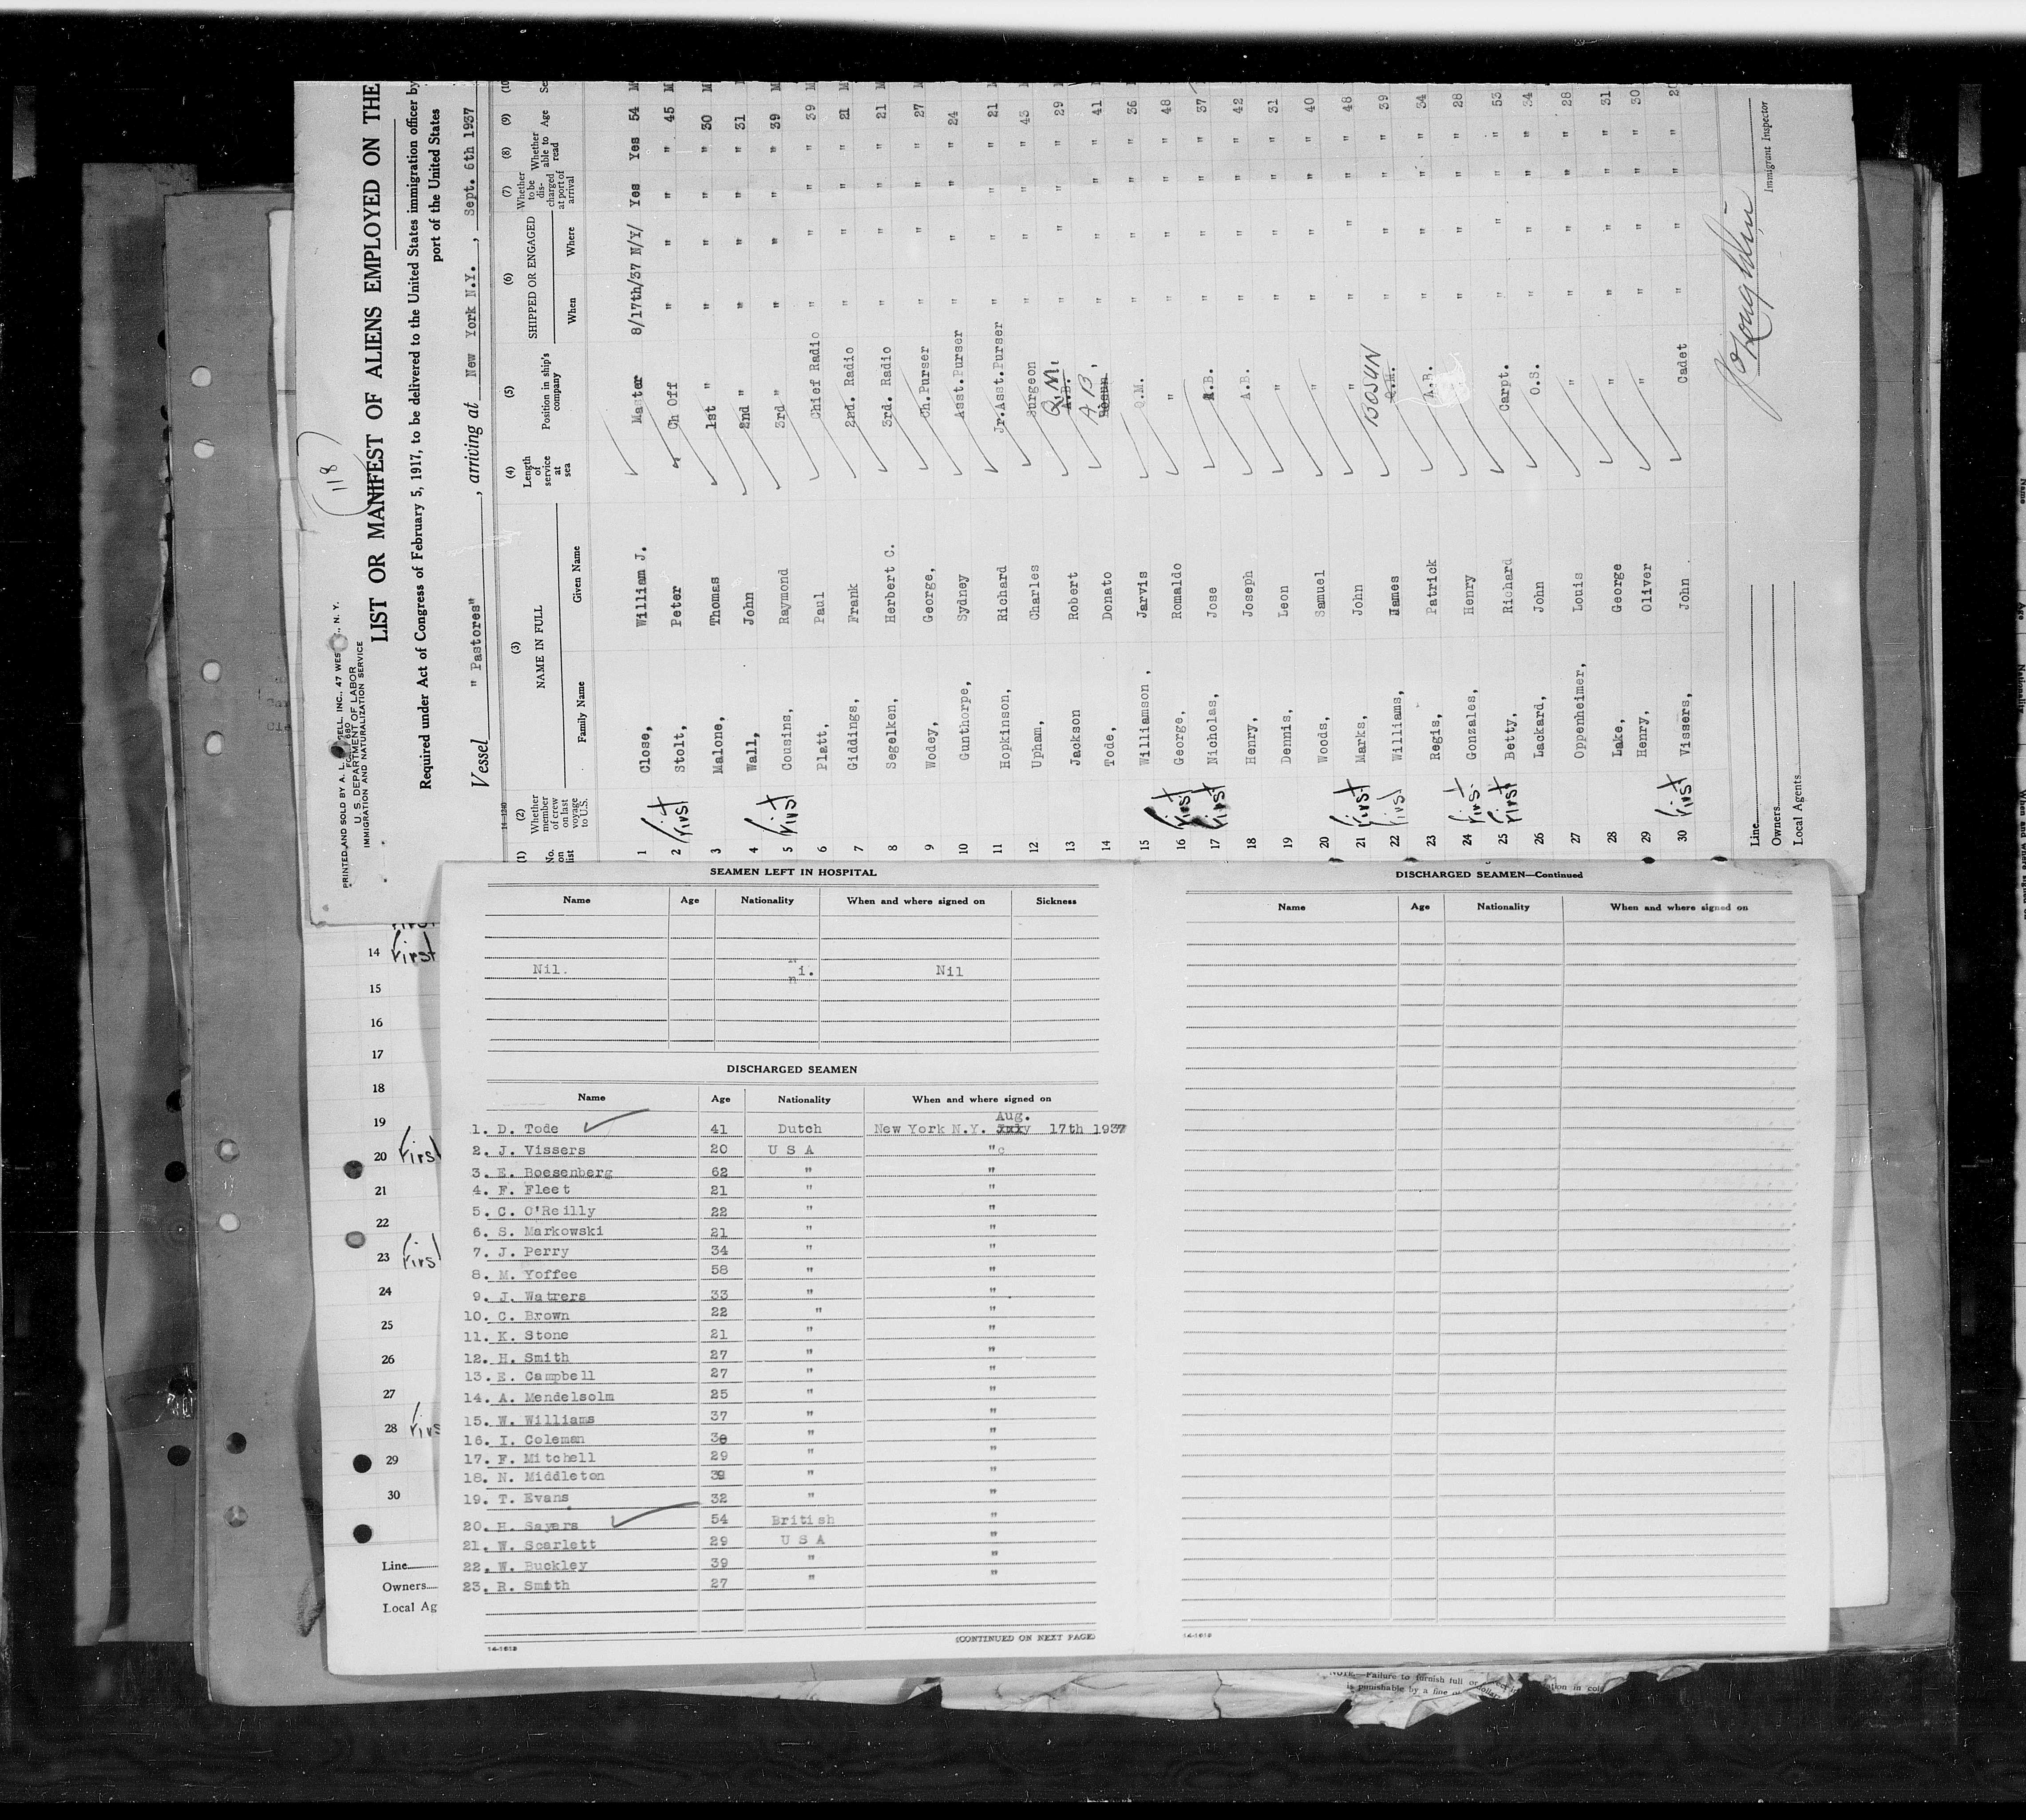 (118)
PRINTED AND SOLD BY A. L. ELL, INC., 47 WES, N. Y.
U. S. DEPARTMENT OF LABOR
IMMIGRATION AND NATURALIZATION SERVICE
LIST OR MANIFEST OF ALIENS EMPLOYED ON THE
Required under Act of Congress of February 5, 1917, to be delivered to the United States immigration officer by
port of the United States
Vessel " Pastores" , arriving at New York N.Y. , Sept. 6th 1937
(1) No. on list (2) Whether member of crew on last voyage to U.S. (3) NAME IN FULL Family Name Given Name (4) Length of service at sea (5) Position in ship's company (6) SHIPPED OR ENGAGED When Where (7) Whether to be discharged at port of arrival (8) Whether able to read (9) Age
1 Close, William J. Master 8/17th/37 N/Y/ Yes Yes 54 M
2 First Stolt, Peter Ch Off " " " " 45 M
3 Malone, Thomas 1st " " " " " 30 M
4 Wall, John 2nd " " " " " 31
5 First Cousins, Raymond 3rd " " " " " 39 M
6 Platt, Paul Chief Radio " " " " 39 M
7 Giddings, Frank 2nd. Radio " " " " 21 M
8 Segelken, Herbert C. 3rd. Radio " " " " 21 M
9 Wodey, George, Ch.Purser " " " " 27 M
10 Gunthorpe, Sydney Asst.Purser " " " " 24
11 Hopkinson, Richard Jr.Asst.Purser " " " " 21 M
12 Upham, Charles Surgeon " " " " 43
13 Jackson Robert A.B. Q.M. " " " " 29
14 Tode, Donato Bosun A.B. " " " " 41
15 Williamson, Jarvis Q.M. " " " " 36
16 First George, Romaldo " " " " " 48
17 First Nicholas, Jose A.B. " " " " 37
18 Henry, Joseph A.B. " " " " 42
19 Dennis, Leon " " " " " 31
20 Woods, Samuel " " " " " 40
21 First Marks, John " " " " " 48
22 First Williams, James Q.M. BOSUN " " " " 39
23 Regis, Patrick A.B. " " " " 34
24 First Gonzales, Henry " " " " 28
25 First Betty, Richard Carpt. " " " " 53
26 Lackard, John O.S. " " " " 34
27 Oppenheimer, Louis " " " " " 28
28 Lake, George " " " " " 31
29 Henry, Oliver " " " " " 30
30 First Vissers, John Cadet " " " " 20
Line
Owners
Local Agents
Immigrant Inspector
14 First
15
16
17
18
19
20 First
21
22
23 First
24
25
26
27
28 First
29
30
Line
Owners
Local Ag
SEAMEN LEFT IN HOSPITAL
Name Age Nationality When and where signed on Sickness
Nil. n i. Nil
DISCHARGED SEAMEN
Name Age Nationality When and where signed on
Aug.
1. D. Tode 41 Dutch New York N.Y. July 17th 1937
2. J. Vissers 20 U S A "
3. E. Boesenberg 62 " "
4. F. Fleet 21 " "
5. C. O'Reilly 22 " "
6. S. Markowski 21 " "
7. J. Perry 34 " "
8. M. Yoffee 58 " "
9. J. Watrers 33 " "
10. C. Brown 22 " "
11. K. Stone 21 " "
12. H. Smith 27 " "
13. E. Campbell 27 " "
14. A. Mendelsolm 25 " "
15. W. Williams 37 " "
16. I. Coleman " "
17. F. Mitchell 29 " "
18. N. Middleton " "
19. T. Evans 32 " "
20. H. Sayers 54 British "
21. W. Scarlett 29 U S A "
22. W. Buckley 39 " "
23. R. Smith 27 " "
(CONTINUED ON NEXT PAGE)
14-1619
DISCHARGED SEAMEN—Continued
Name Age Nationality When and where signed on
14-1619
NOTE.—Failure to furnish full or
is punishable by a fine